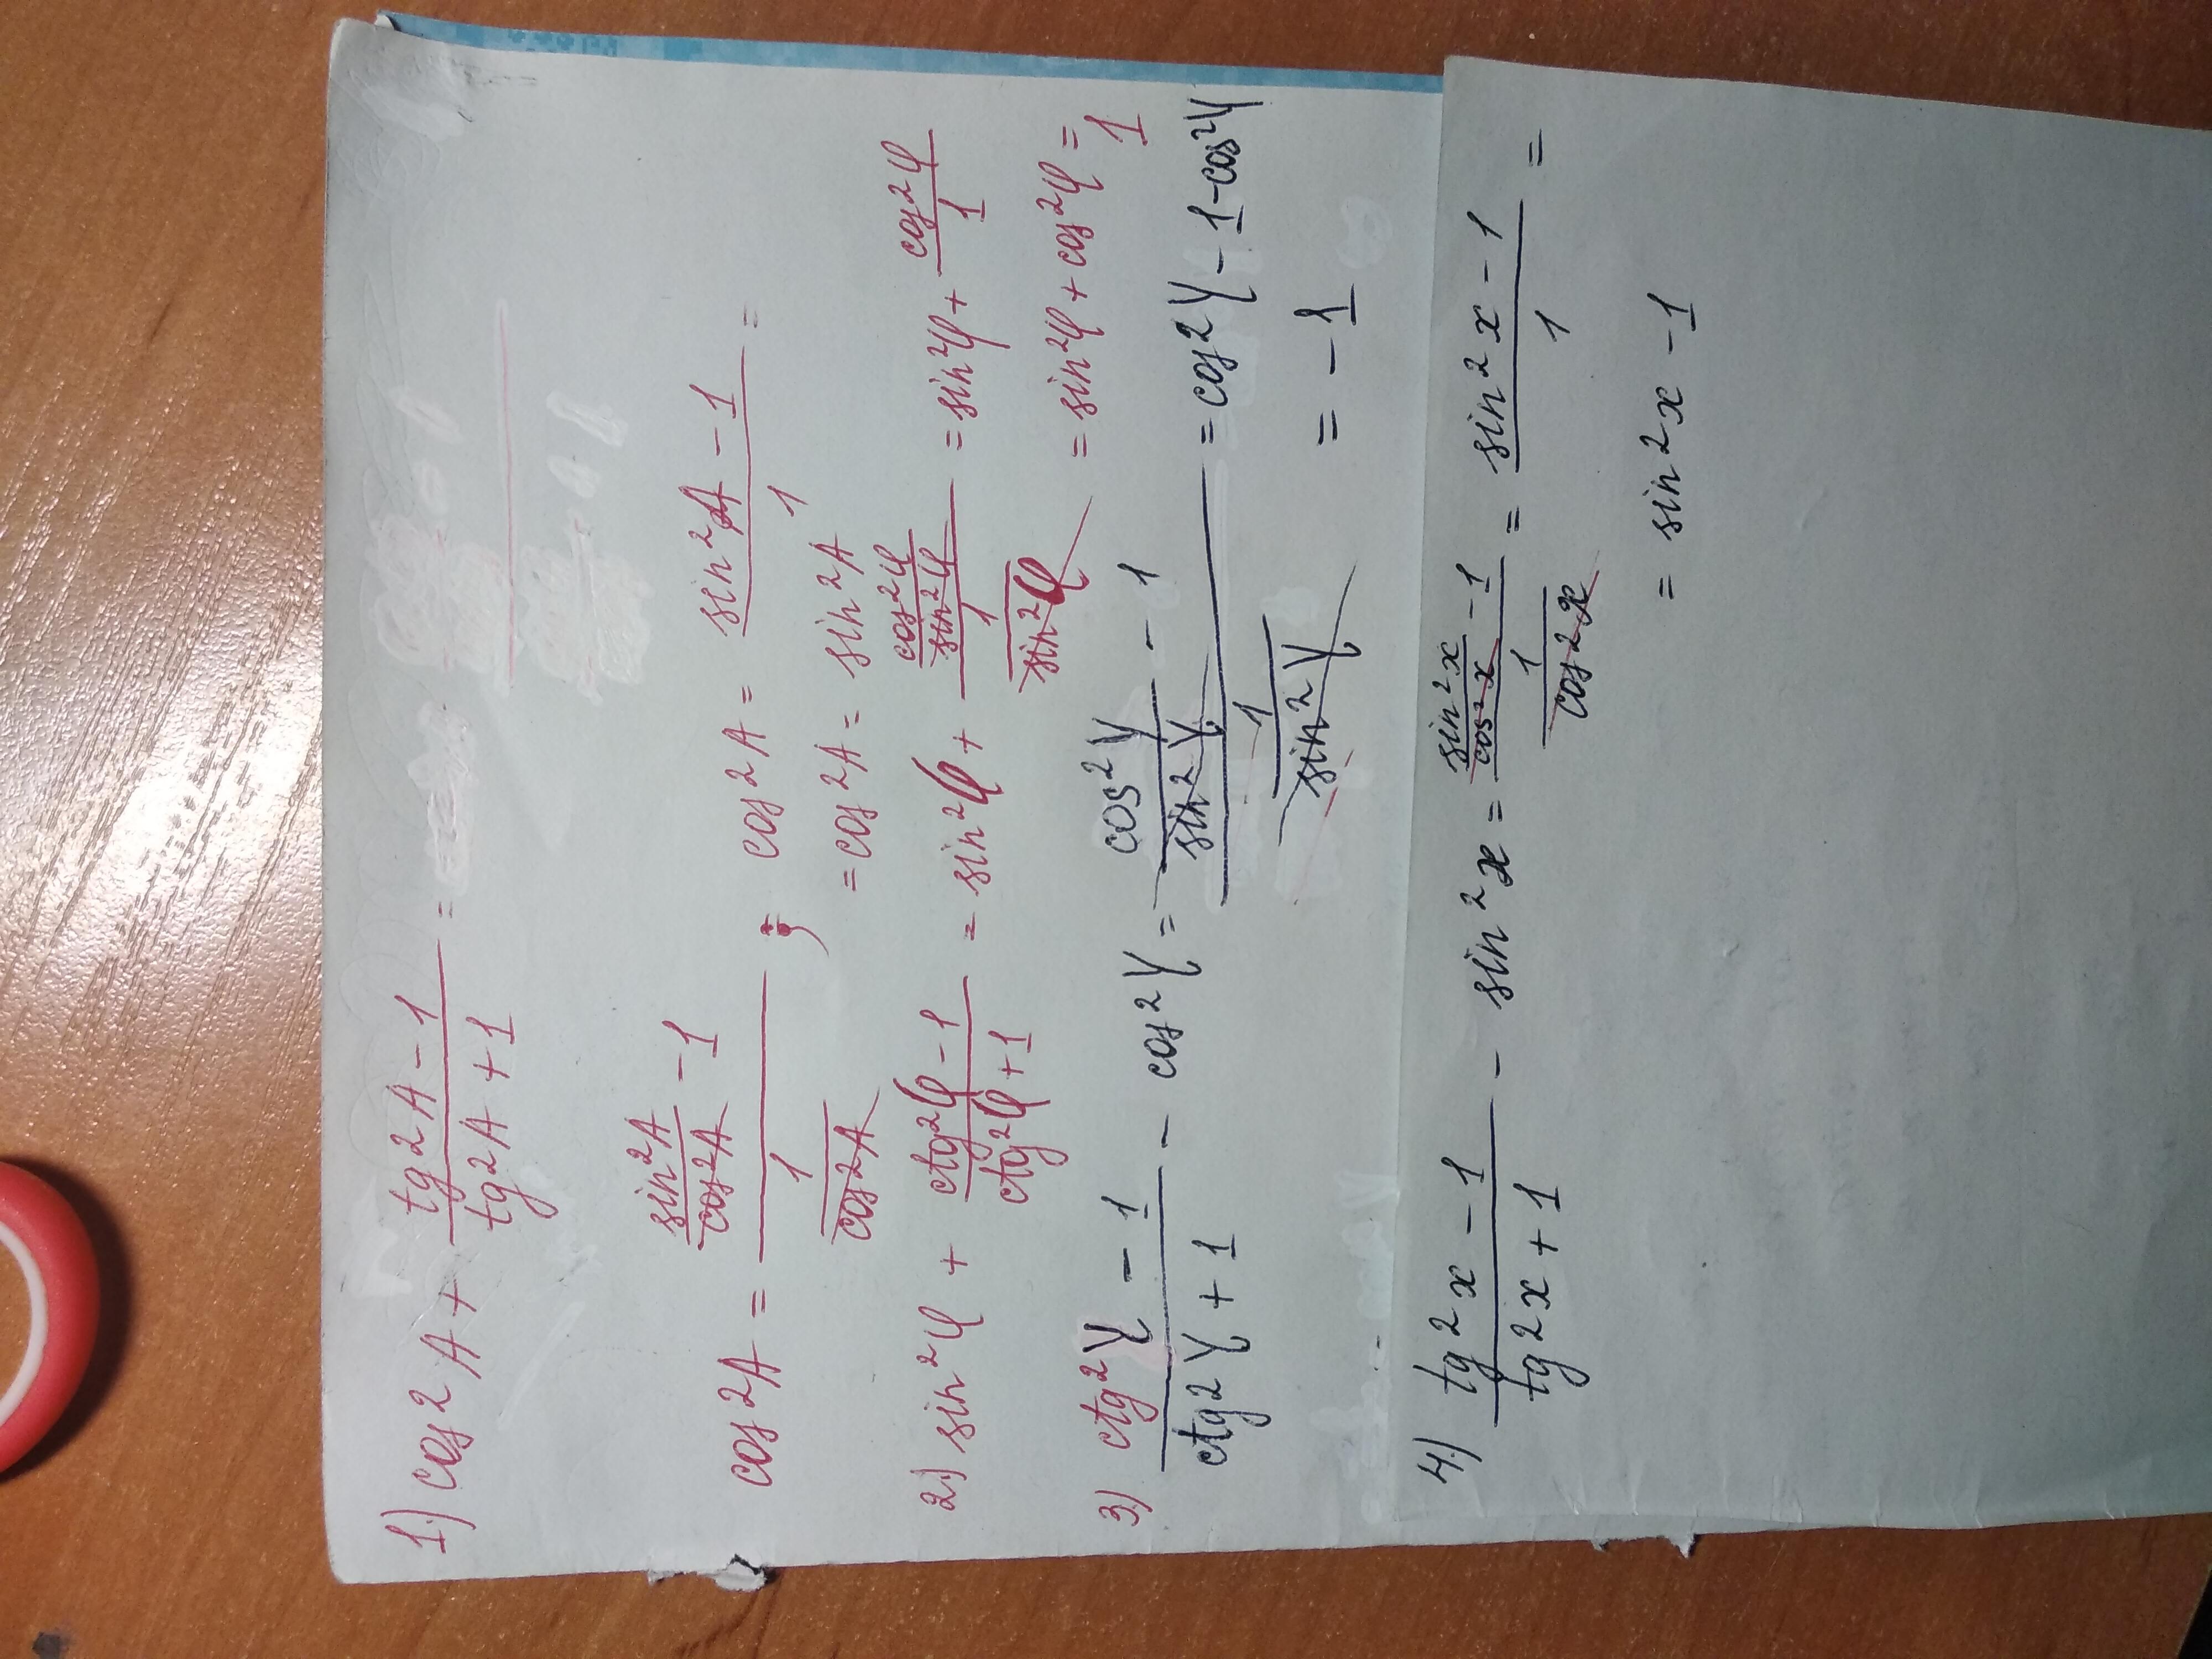 1.) cos²A + (tg²A - 1)/(tg²A + 1) =
cos²A = (sin²A/cos²A - 1)/(1/cos²A) ; cos²A = (sin²A - 1)/1 =
= cos²A = sin²A
2.) sin²φ + (ctg²φ - 1)/(ctg²φ + 1) = sin²φ + (cos²φ/sin²φ)/(1/sin²φ) = sin²φ + cos²φ/1
= sin²φ + cos²φ = 1
3.) (ctg²γ - 1)/(ctg²γ + 1) - cos²γ = (cos²γ/sin²γ - 1)/(1/sin²γ) = cos²γ - 1 - cos²γ
= -1
4.) (tg²x - 1)/(tg²x + 1) - sin²x = (sin²x/cos²x - 1)/(1/cos²x) = (sin²x - 1)/1 =
= sin²x - 1